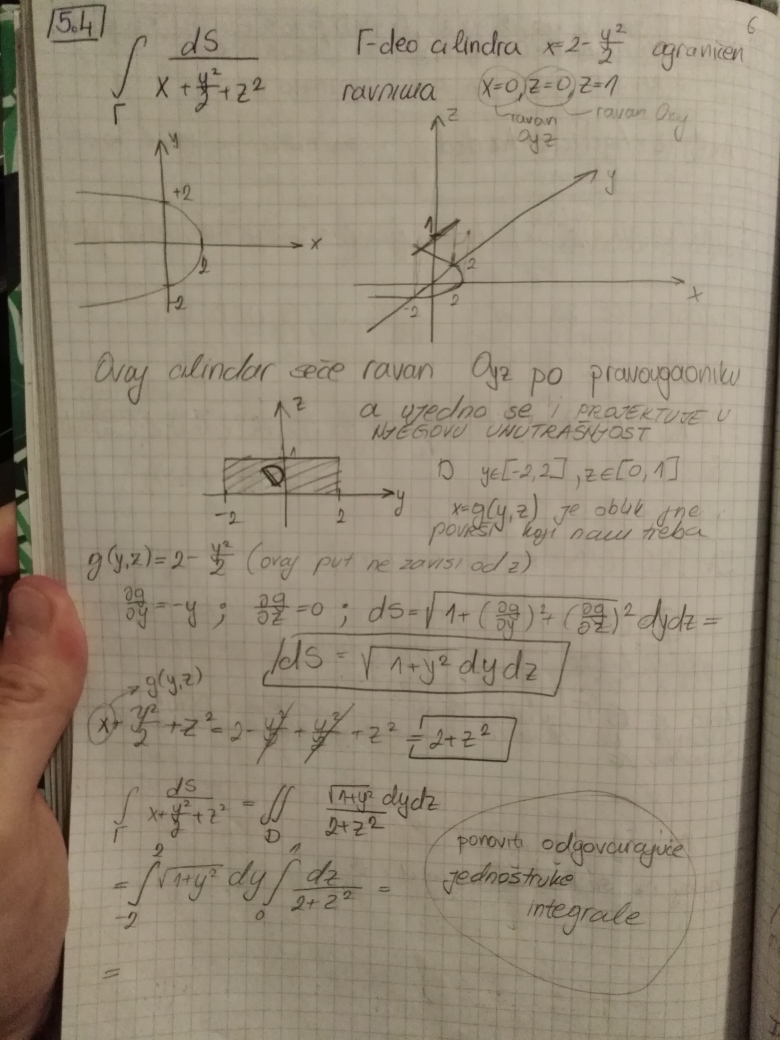 6
5.4
∫_Γ dS / (x + y²/2 + z²)
Γ-deo cilindra x=2-y²/2 ograničen
ravnima x=0, z=0, z=1
ravan Oyz
ravan Oxy
y
+2
x
2
-2
z
y
1
2
-2
2
x
Ovaj cilindar seče ravan Oyz po pravougaoniku
a ujedno se i PROJEKTUJE U
NJEGOVU UNUTRAŠNJOST
z
1
D
-2
2
y
D y∈[-2,2], z∈[0,1]
x=g(y,z) je oblik jne
površi koji nam treba
g(y,z)=2-y²/2 (ovaj put ne zavisi od z)
∂g/∂y=-y ; ∂g/∂z=0 ; dS=√(1+(∂g/∂y)²+(∂g/∂z)²) dydz =
dS = √(1+y²) dydz
g(y,z)
x+y²/2+z²=2-y²/2+y²/2+z²=2+z²
∫_Γ dS/(x+y²/2+z²) = ∬_D √(1+y²) dydz/(2+z²)
= ∫_{-2}^{2} √(1+y²) dy ∫_0^1 dz/(2+z²) =
ponoviti odgovarajuće
jednostruke
integrale
=